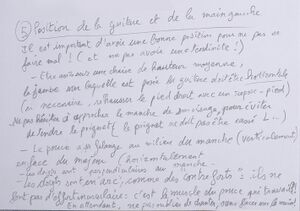 (5) Position de la guitare et de la main gauche
Il est important d'avoir une bonne position pour ne pas se
faire mal ! (et ne pas avoir une tendinite !)
- Être assis sur une chaise de hauteur moyenne,
la jambe sur laquelle est posée la guitare doit être horizontale
(si nécessaire, rehausser le pied droit avec un repose-pied)
Ne pas hésiter à approcher le manche de son visage, pour éviter
de tordre le poignet (le poignet ne doit pas être cassé
- Le pouce à placer au milieu du manche (verticalement)
en face du majeur (horizontalement
- les doigts sont perpendiculaires au manche -
- les doigts sont en arc, comme des "contreforts" = ils ne
font pas d'effort musculaire : c'est le muscle du pouce qui travaille
En attendant, ne pas oublier de chanter, sans forcer sur la main !